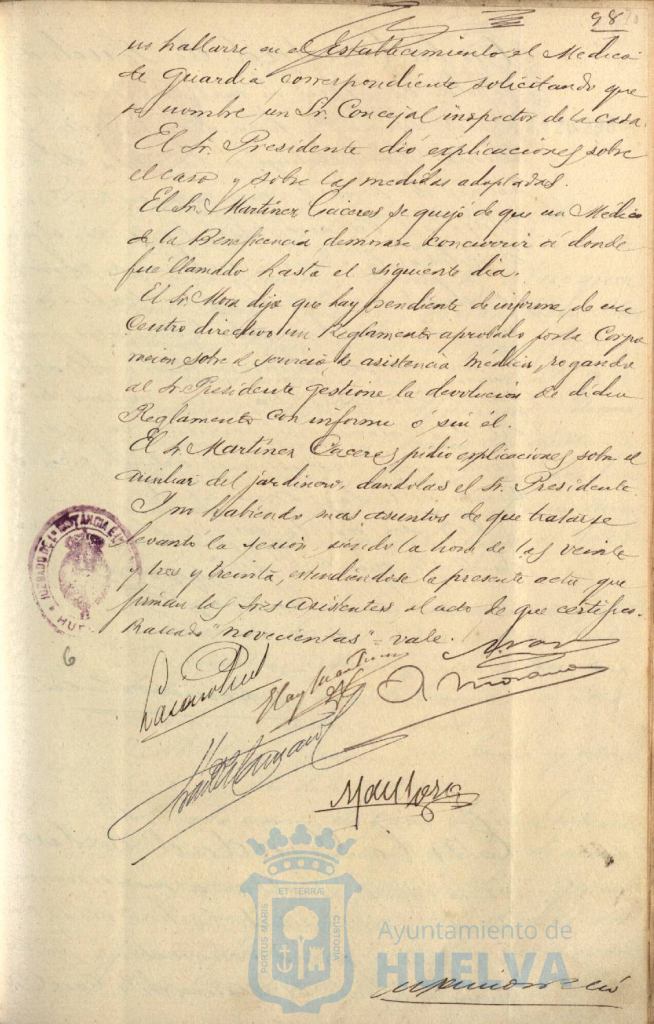 98
no hallarse en el Establecimiento el Medico
de Guardia correspondiente solicitando que
se nombre un Sr. Concejal inspector de la casa.
El Sr. Presidente dió explicaciones sobre
el caso y sobre las medidas adoptadas.
El Sr. Martinez Caceres se quejó de que un Medico
de la Beneficencia demorase concurrir á donde
fué llamado hasta el siguiente dia.
El Sr. Mora dijo que hay pendiente de informe de ese
Centro directivo un Reglamento aprobado por la Corpo
racion sobre el servicio de asistencia médica, rogando
al Sr. Presidente gestione la devolución de dicho
Reglamento con informe ó sin él.
El Sr. Martinez Caceres pidió explicaciones sobre el
auxiliar del jardinero, dandolas el Sr. Presidente.
Y no habiendo mas asuntos de que tratar se
levantó la sesión, siendo la hora de las veinte
y tres y treinta, estendiendose la presente acta que
firman los Sres Asistentes al acto de que certifico.
Raspado "novecientas" = vale.
JUZGADO DE 1ª INSTANCIA E
HUE
6
ET TERRÆ
PORTUS MARIS
CUSTODIA
Ayuntamiento de
HUELVA